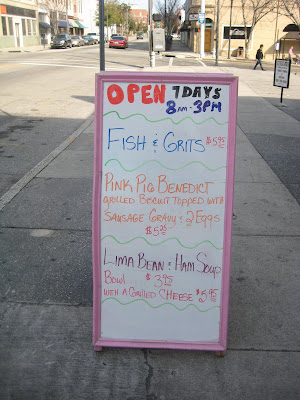 OPEN 7 DAYS
8AM-3PM
FISH & GRITS $5.95
PINK PIG BENEDICT
GRILLED BISCUIT TOPPED WITH
SAUSAGE GRAVY & 2 EGGS
$5.25
LIMA BEAN & HAM SOUP
BOWL $3.95
WITH A GRILLED CHEESE $5.95